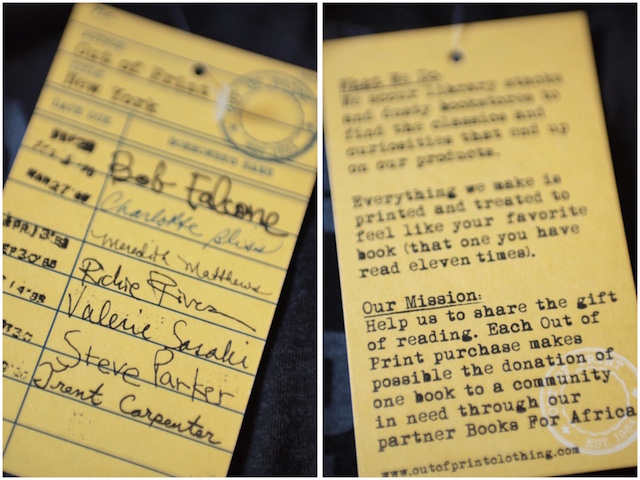 Out of Print
New York
DATE DUE
BORROWER'S NAME
Bob Falcone
MAR 27 '88
Charlotte Bliss
Meredith Matthews
APR 13 '88
Richie Rivera
SEP 30 '88
Valerie Sasaki
14 '88
Steve Parker
Trent Carpenter
What We Do
We scour library stacks
and dusty bookstores to
find the classics and
curiosities that end up
on our products.
Everything we make is
printed and treated to
feel like your favorite
book (that one you have
read eleven times).
Our Mission:
Help us to share the gift
of reading. Each Out of
Print purchase makes
possible the donation of
one book to a community
in need through our
partner Books For Africa
www.outofprintclothing.com